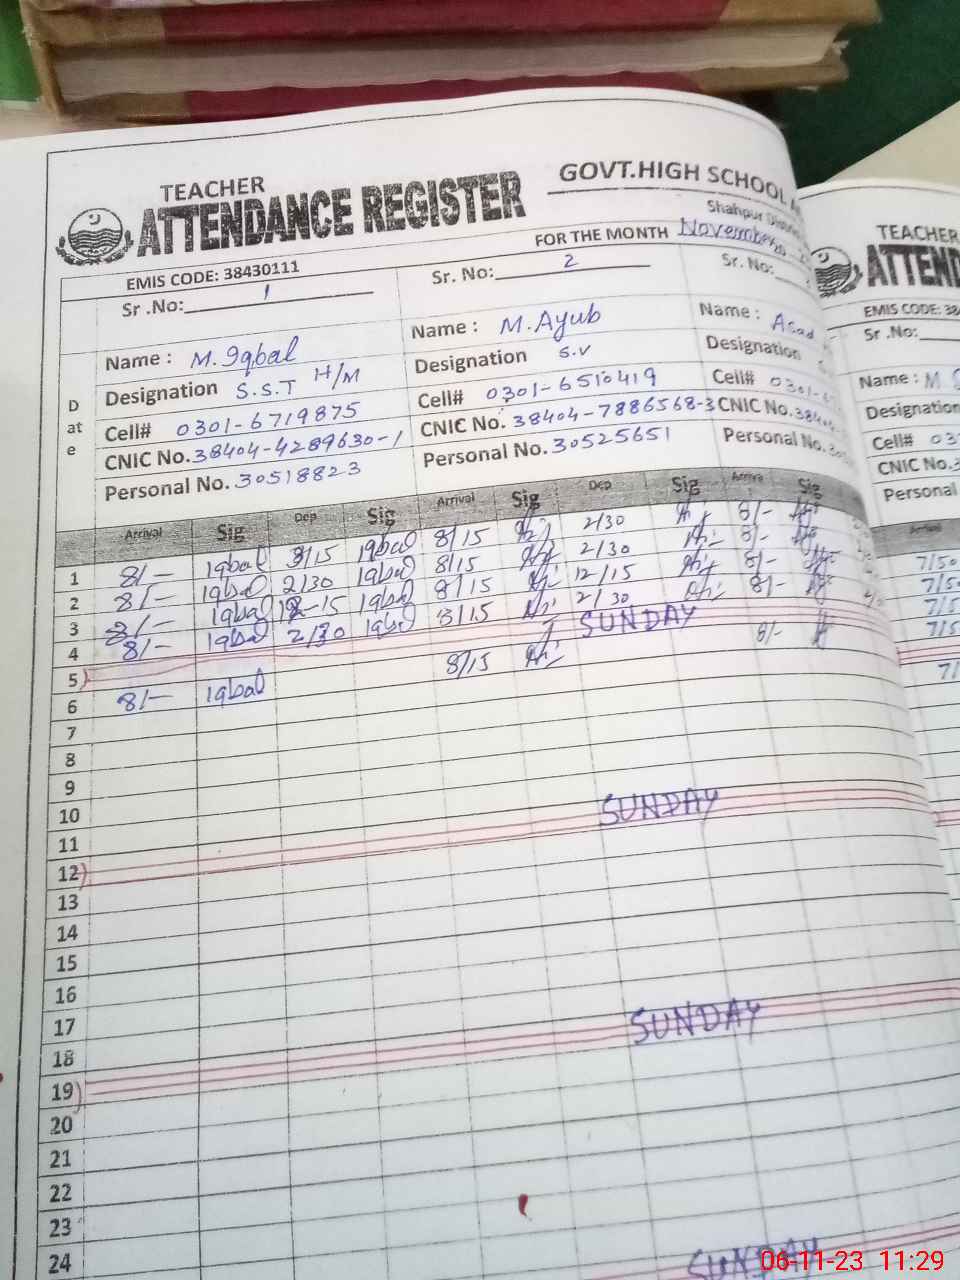 TEACHER
ATTENDANCE REGISTER
GOVT.HIGH SCHOOL
Shahpur
FOR THE MONTH November
EMIS CODE: 38430111
Sr .No: 1
Sr. No: 2
Sr. No:
Name : M. Iqbal
Name : M. Ayub
Name : Asad
Designation S.S.T H/M
Designation S.V
Designation
Cell# 0301-6719875
Cell# 0301-6510419
Cell# 0301-6
CNIC No. 38404-4289630-1
CNIC No. 38404-7886568-3
CNIC No. 38404
Personal No. 30518823
Personal No. 30525651
Personal No. 30
Date
Arrival Sig Dep Sig Arrival Sig Dep Sig Arrival Sig
1 8/— Iqbal 3/15 Iqbal 8/15 2/30 8/-
2 8/— Iqbal 2/30 Iqbal 8/15 2/30 8/-
3 8/— Iqbal 12-15 Iqbal 8/15 12/15 8/-
4 8/— Iqbal 2/30 Iqbal 8/15 2/30 8/-
5) SUNDAY
6 8/— Iqbal 8/15 8/-
7
8
9
10
11
12) SUNDAY
13
14
15
16
17
18
19) SUNDAY
20
21
22
23
24
SUNDAY
TEACHER
ATTEND
EMIS CODE: 38
Sr .No:
Name : M
Designation
Cell# 03
CNIC No.3
Personal
Arrival
7/50
7/5
7/5
7/5
7/
06-11-23 11:29